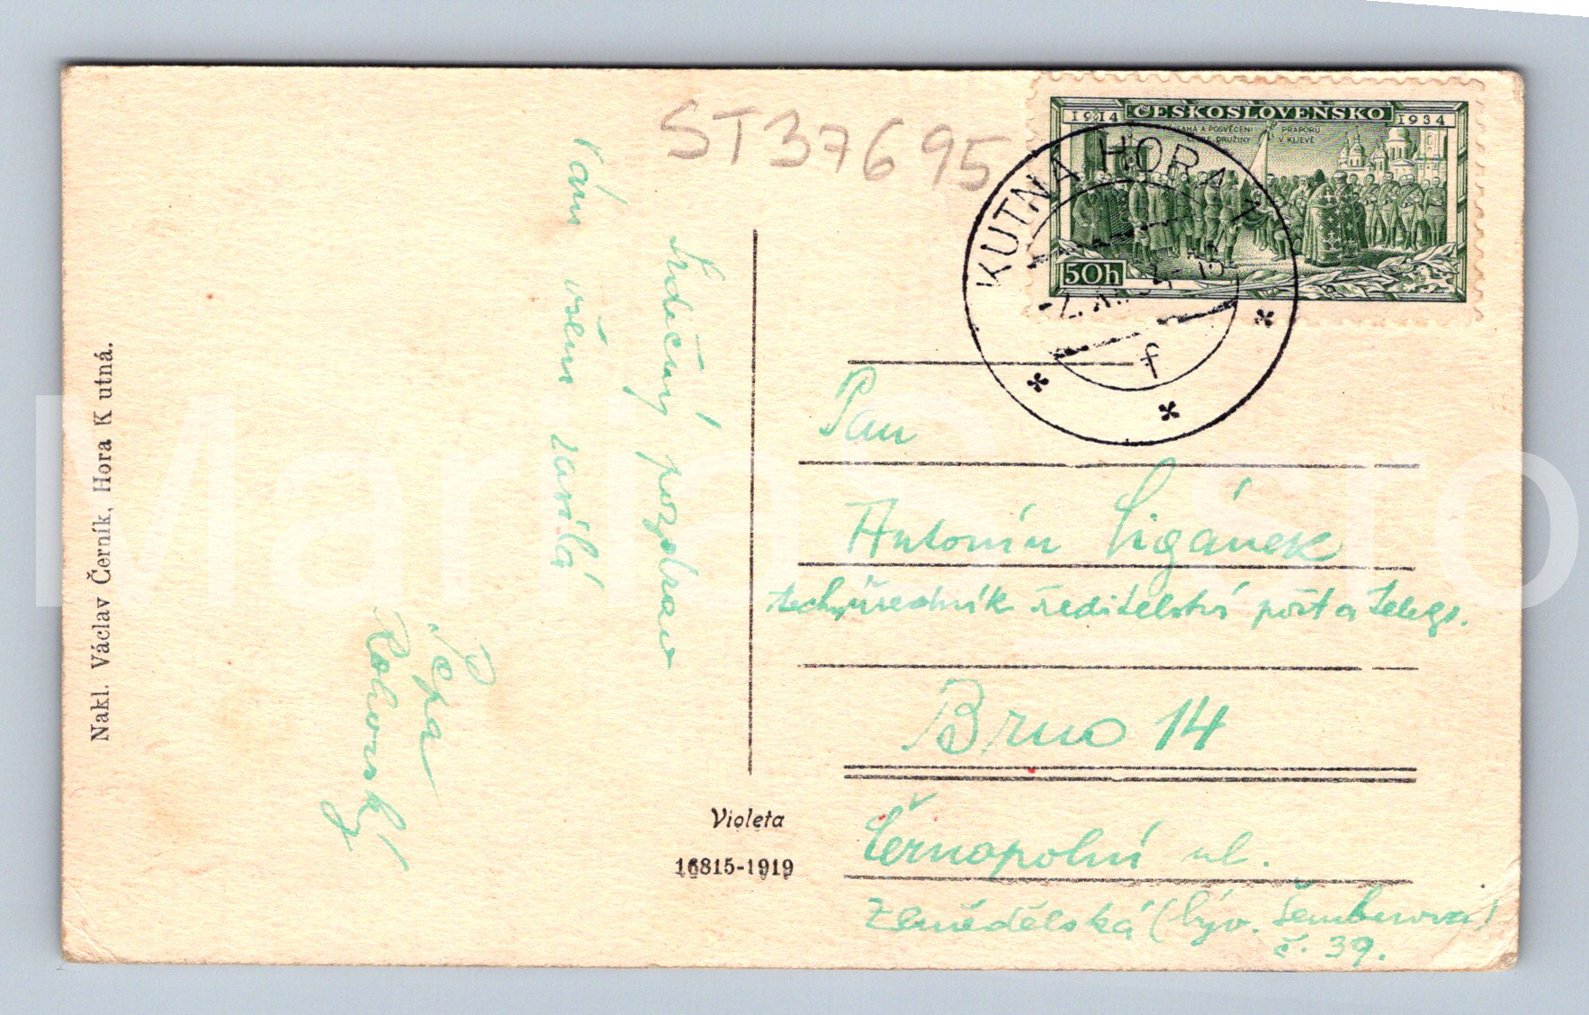 ST37695
1914 ČESKOSLOVENSKO 1934
PŘÍSAHA A POSVĚCENÍ PRAPORU
DRUŽINY V KIJEVĚ
50h
KUTNÁ HORA
f
Srdečný pozdrav
Vám všem zasílá
Pepa
Rohovský
Pan
Antonín Cigánek
techn. úředník ředitelství pošt a telegr.
Brno 14
Černopolní ul.
Zemědělská (býv. Šemberova)
č. 39.
Nakl. Václav Černík, Hora Kutná.
Violeta
16815-1919